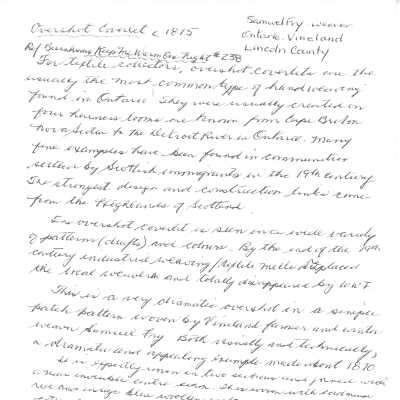 Overshot Coverlet c 1875
Samuel Fry weaver
Ontario. Vineland
Lincoln County
Ref Burnhams Keep Me Warm One Night #238
For textile collectors, overshot coverlets are the
usually the most common type of handweaving
found in Ontario. They were usually created on
four harness looms are known from Cape Breton
Nova Scotia to the Detroit River in Ontario. Many
fine examples have been found in communities
settled by Scottish immigrants in the 19th century
The strongest design and construction links come
from the Highlands of Scotland.
The overshot coverlet is seen in a wide variety
of patterns (drafts) and colours. By the end of the 19th
century industrial weaving/textile mills replaced
the local weavers and totally disappeared by WWI
This is a very dramatic overshot in a simple
patch pattern woven by Vineland farmer and
weaver Samuel Fry Both visually and technically,
a dramatic and appealing example made about 1870
It is expertly woven in two sections and joined with
a near invisible centre seam.